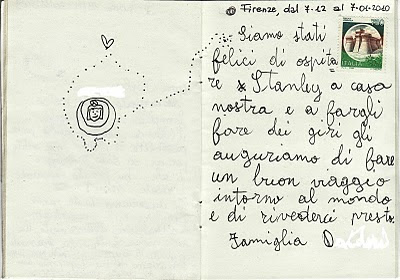 Firenze, dal 7.12 al 7.01.2010
Siamo stati
felici di ospita
re Stanley a casa
nostra e a fargli
fare dei giri gli
auguriamo di fare
un buon viaggio
intorno al mondo
e di rivederci presto.
Famiglia
ITALIA